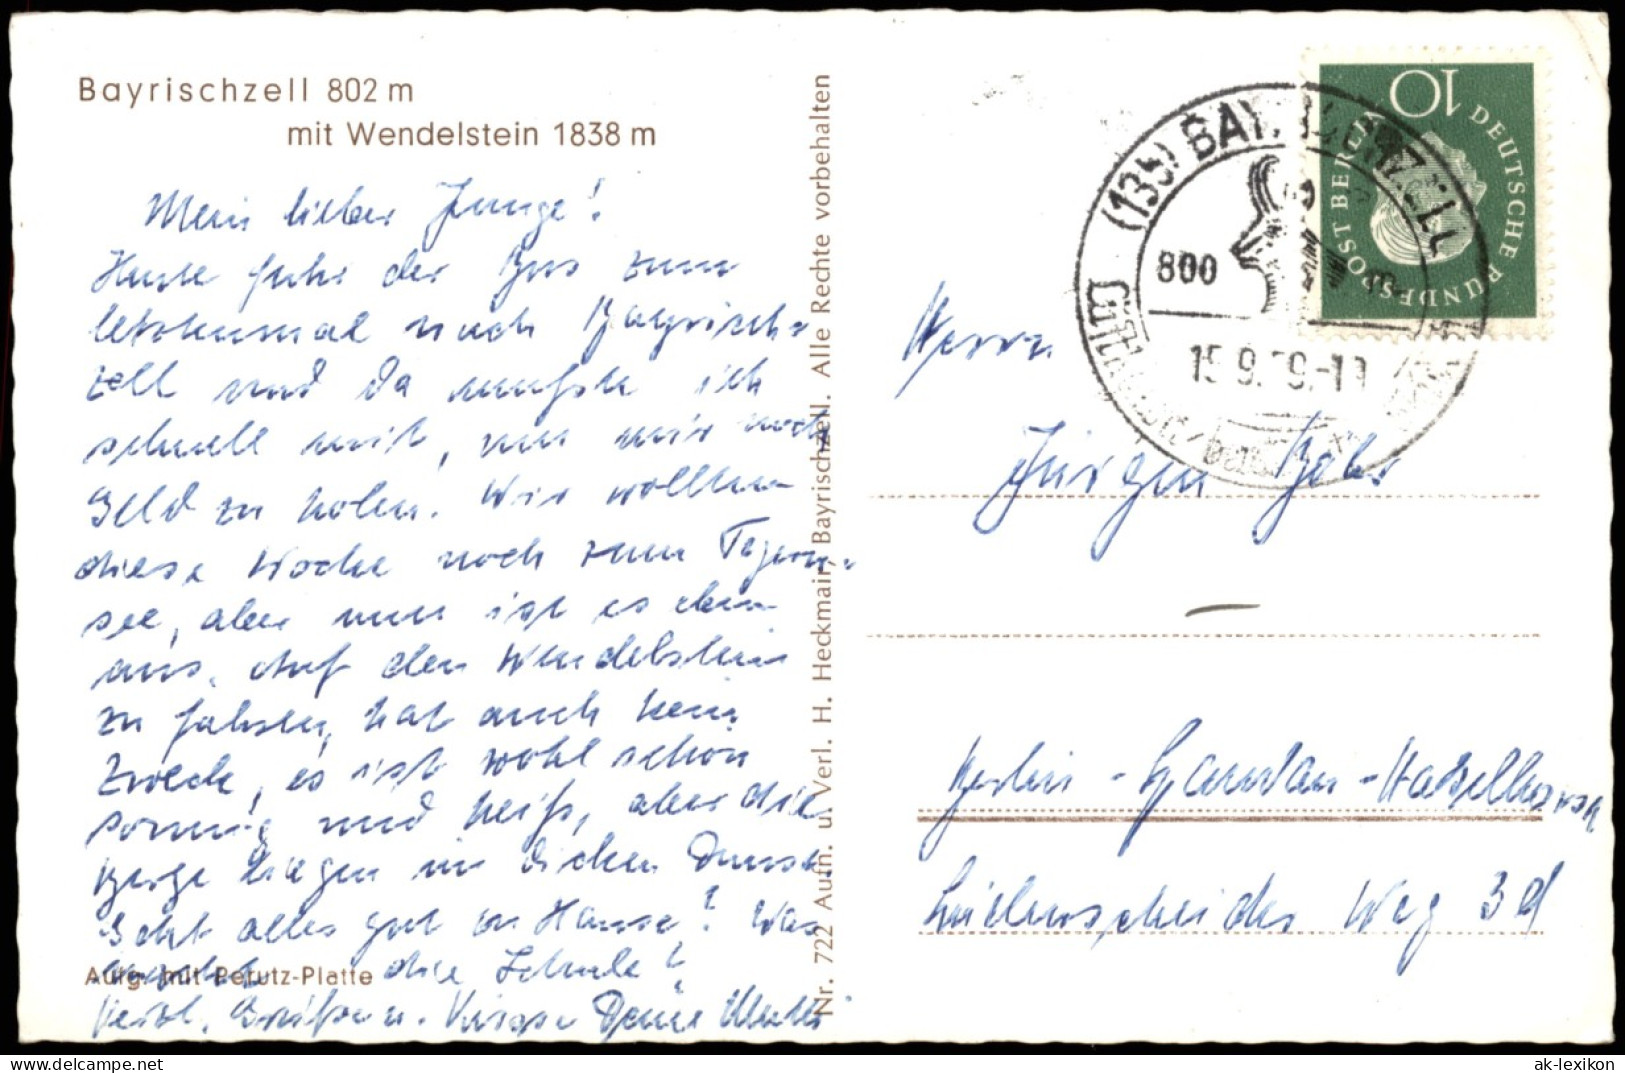 Bayrischzell 802 m
mit Wendelstein 1838 m
Mein lieber Junge!
Heute fuhr der Bus zum
letztenmal nach Bayrisch-
zell und da mußte ich
schnell mit, um mir noch
Geld zu holen. Wir wollten
diese Woche noch zum Tegern-
see, aber nun ist es eben
aus. Auf den Wendelstein
zu fahren, hat auch kein
Zweck, es ist wohl schön
sonnig und heiß, aber die
Berge liegen in dicken Dunst.
Geht alles gut zu Hause? Was
macht die Schule?
Herzl. Grüße u. Küsse Deine Mutti
Aufg. mit Perutz-Platte
Nr. 722 Aufn. u. Verl. H. Heckmair, Bayrischzell. Alle Rechte vorbehalten
(13b) BAYRISCHZELL
800
15.9.59.-1
10
DEUTSCHE BUNDESPOST BERLIN
Herrn
Jürgen
Berlin-Spandau-Haselhorst
Lüdenscheider Weg 3d
ak-lexikon